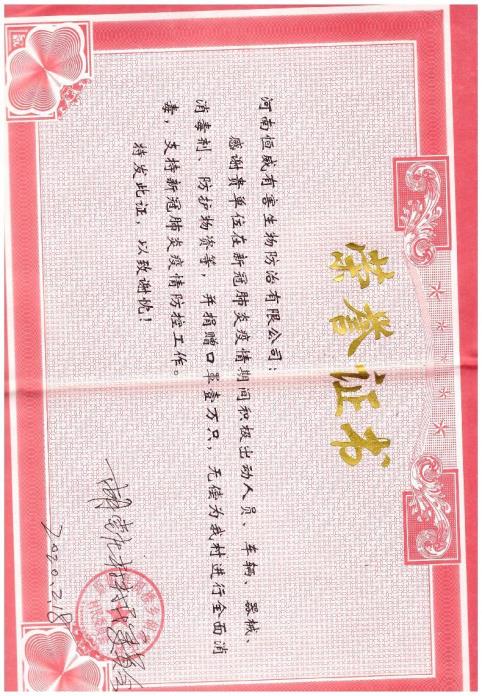 荣誉证书
河南恒威有害生物防治有限公司：
感谢贵单位在新冠肺炎疫情期间积极出动人员、车辆、器械、
消毒剂、防护物资等，并捐赠口罩壹万只，无偿为我村进行全面消
毒，支持新冠肺炎疫情防控工作。
特发此证，以致谢忱！
2020.2.18